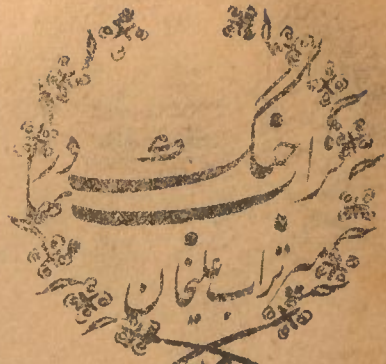 جنگ بہادر
میر تراب علیخان